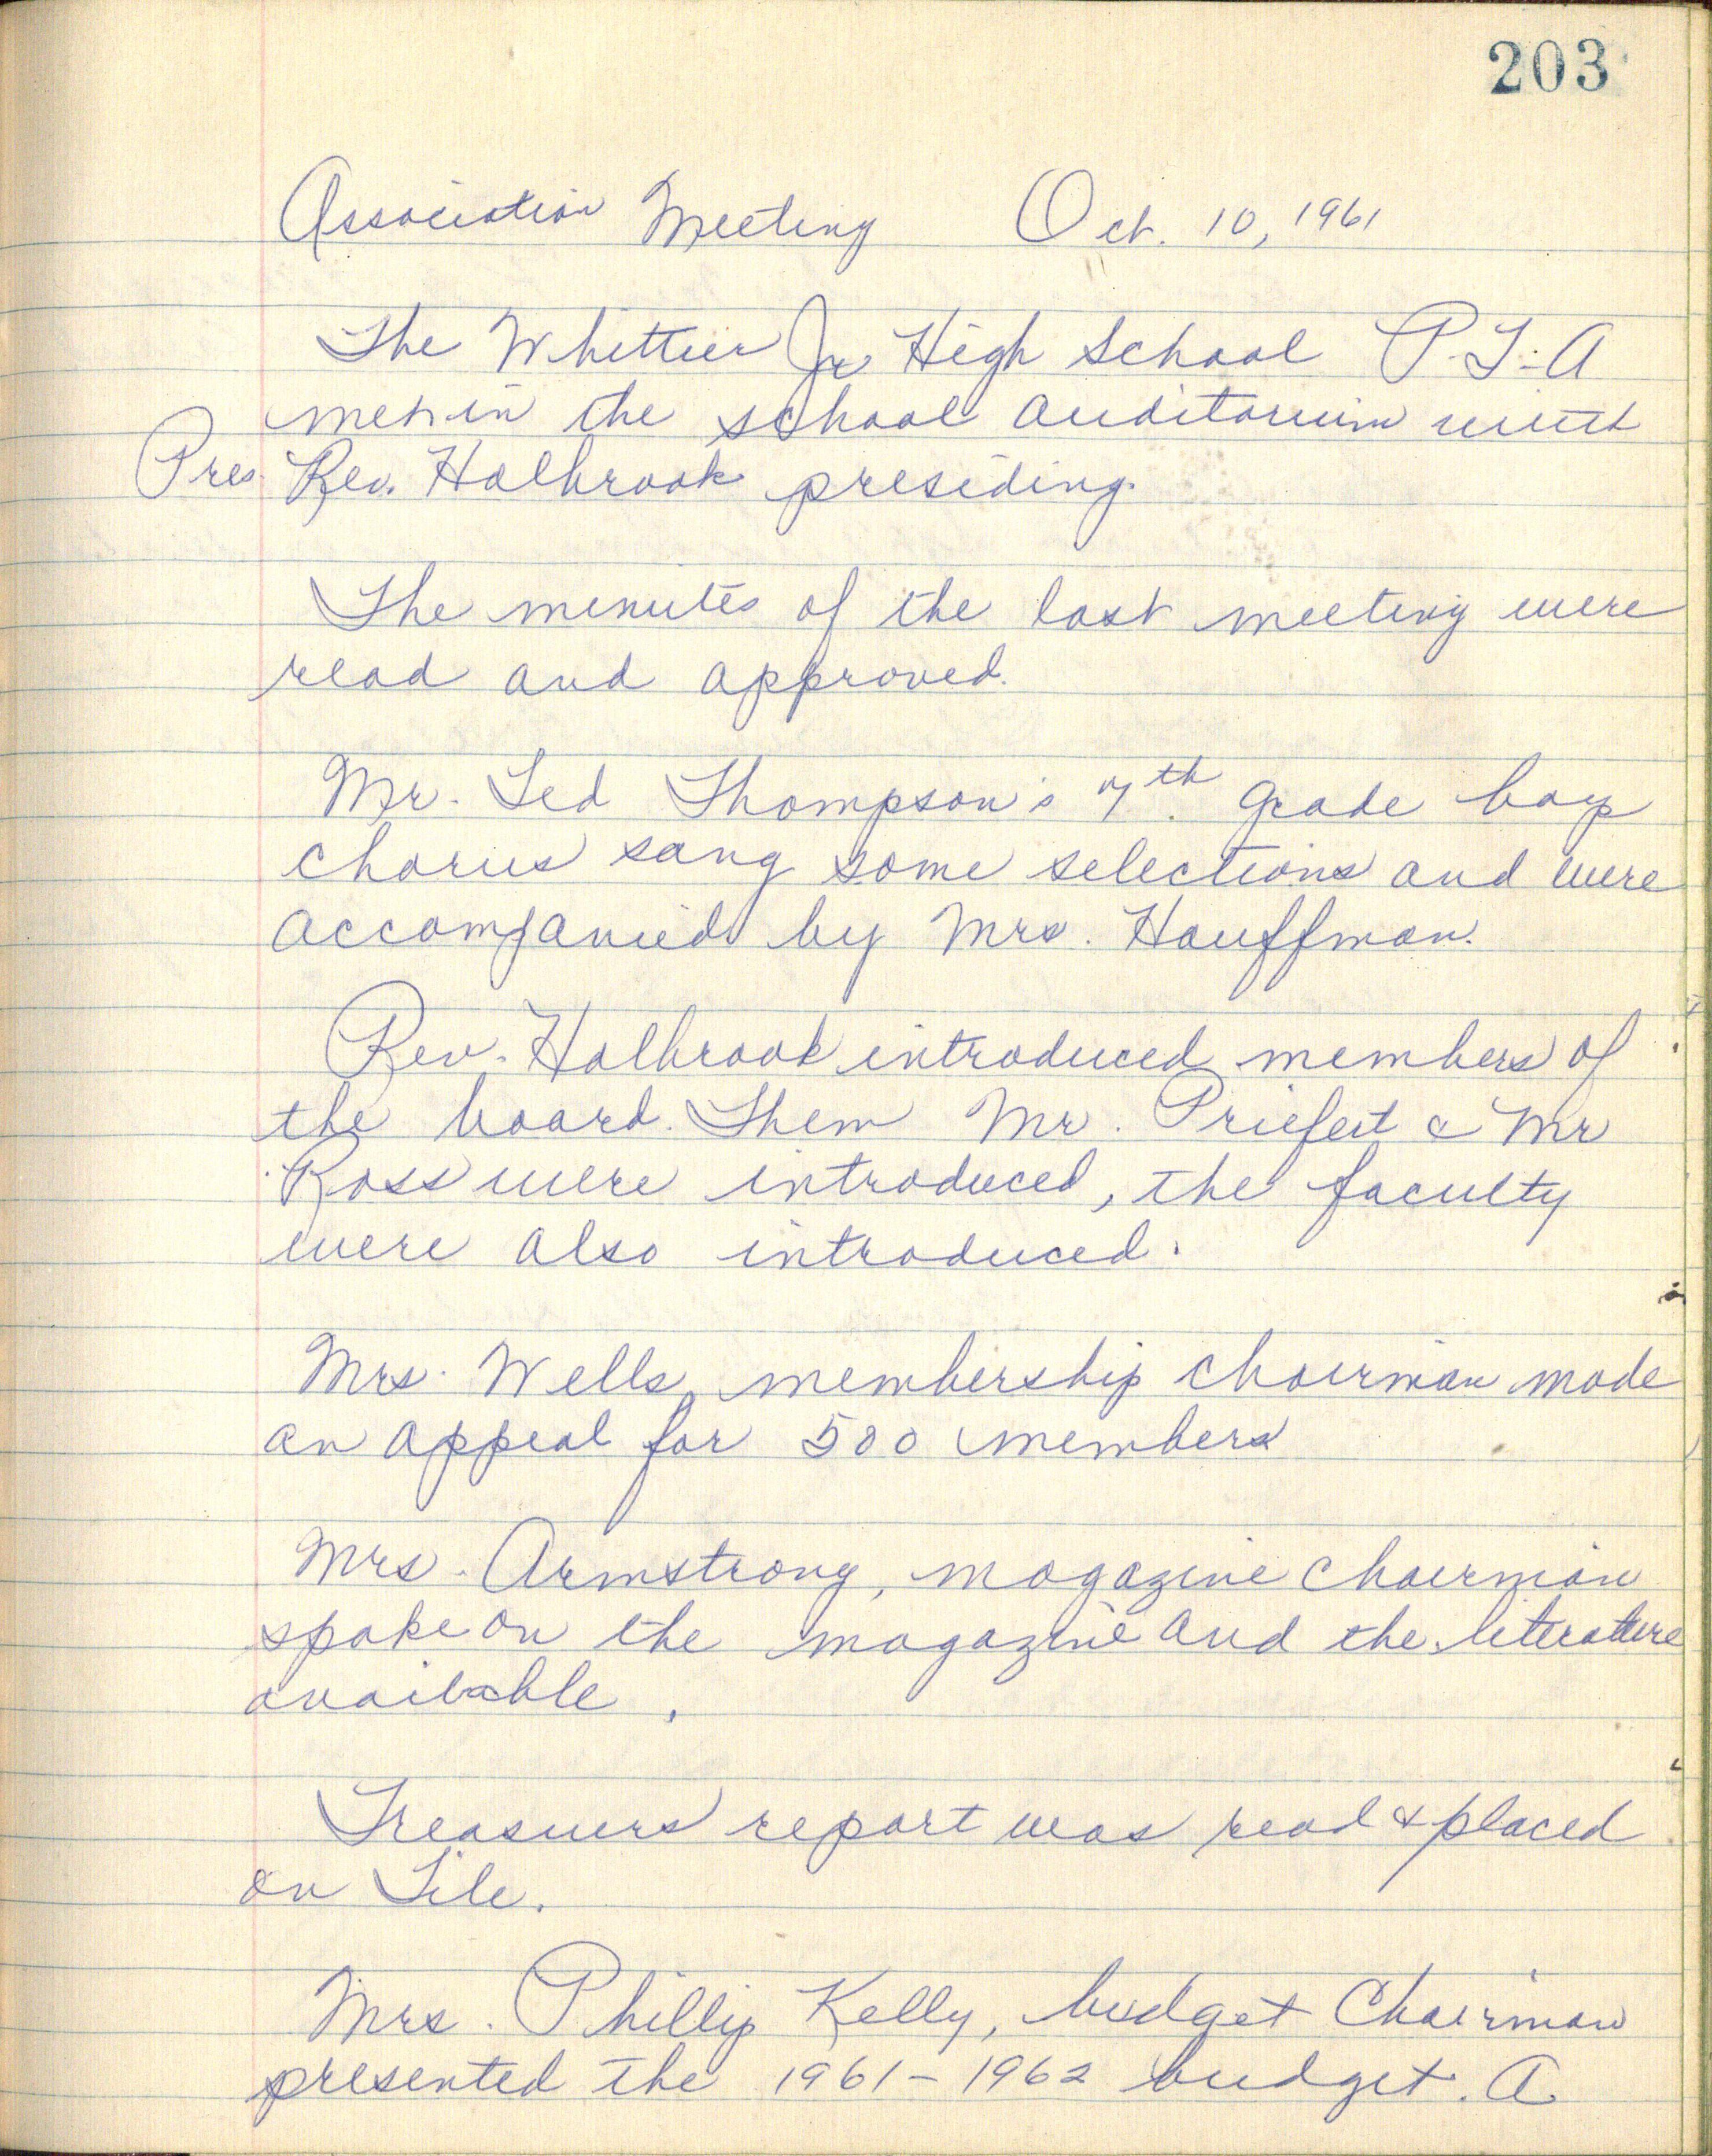 203
Association Meeting Oct. 10, 1961
The Whittier Jr High School P.T.A
met in the school auditorium with
Pres. Rev. Holbrook presiding.
The minutes of the last meeting were
read and approved.
Mr. Ted Thompson's 7th grade boys
chorus sang some selections and were
accompanied by Mrs. Hauffman.
Rev. Holbrook introduced members of
the board. Them Mr. Priefert & Mr
Ross were introduced, the faculty
were also introduced.
Mrs. Wells, membership chairman made
an appeal for 500 members
Mrs. Armstrong, magazine chairman
spoke on the magazine and the literature
available.
Treasurers report was read & placed
on File.
Mrs. Phillip Kelly, budget Chairman
presented the 1961-1962 budget. A